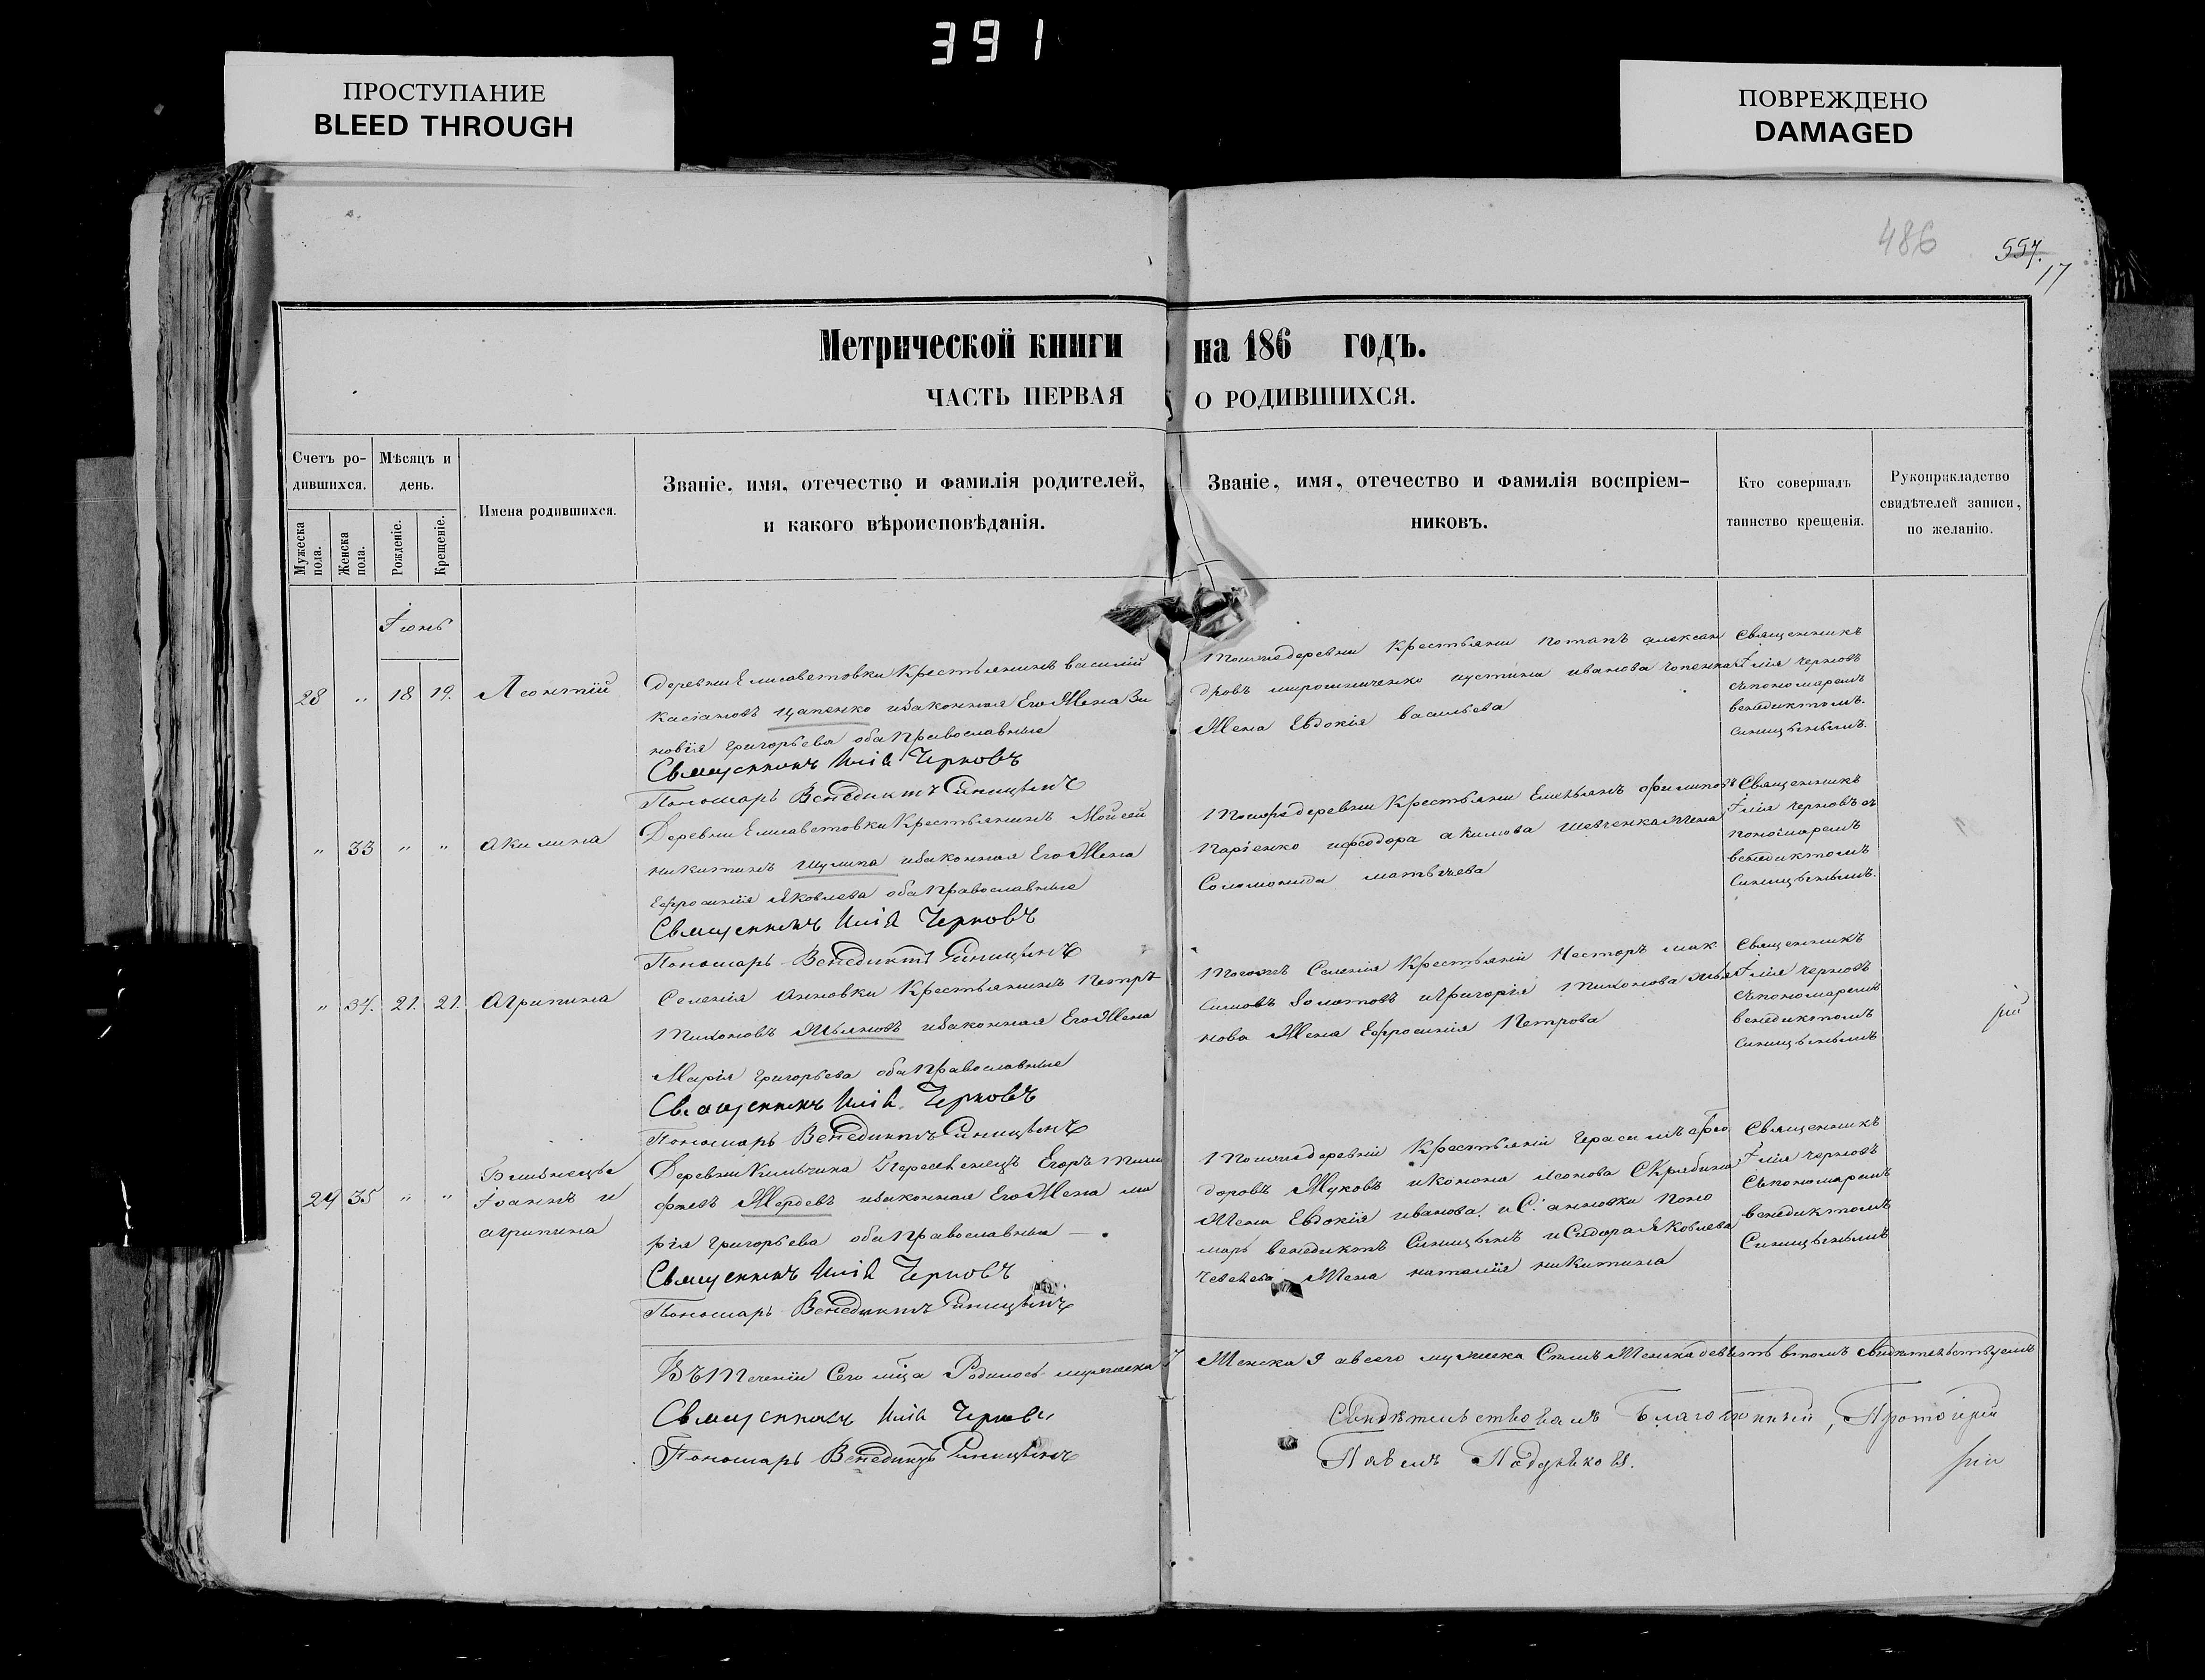 391
ПРОСТУПАНИЕ
BLEED THROUGH
ПОВРЕЖДЕНО
DAMAGED
486
557.
17
Метрической книги на 186 годъ.
ЧАСТЬ ПЕРВАЯ О РОДИВШИХСЯ.
Счетъ ро-
дившихся.
Мужеска
пола.
Женска
пола.
Мѣсяцъ и
день.
Рожденіе.
Крещеніе.
Имена родившихся.
Званіе, имя, отечество и фамилія родителей,
и какого вѣроисповѣданія.
Званіе, имя, отечество и фамилія воспріем-
никовъ.
Кто совершалъ
таинство крещенія.
Рукоприкладство
свидѣтелей записи,
по желанію.
Іюнь
28 „ 18 19. Леонтій
Деревни Елисаветовки Крестьянинъ василій
касіановъ Цапенко изаконная Его Жена Зи
новія григорьева оба Православные
Священникъ Илія Черновъ
Пономарь Венедиктъ Синицынъ
Тойже деревни Крестьяни потапъ алексан
дровъ мирошниченко иустина иванова
Жена Евдокія васильева
Священникъ
Ілія черновъ
съпономаремъ
венедиктомъ
синицынымъ.
„ 33 „ „ акилина
Деревни Елисаветовки Крестьянинъ Мойсей
никитинъ Шулика изаконная Его Жена
Ефросинія Яковлева оба Православные
Священникъ Илія Черновъ
Пономарь Венедиктъ Синицынъ
Тойже деревни Крестьяни Емельянъ филипов
ифеодора акимова шевченка Жена
Соломонида матвѣева
Священникъ
Ілія черновъ съ
пономаремъ
венедиктомъ
Синицынымъ.
„ 34. 21. 21. Агрипина
Селенія Анновки Крестьянинъ Петръ
Тихоновъ Ульяновъ изаконная Его Жена
Марія григорьева оба Православные
Священникъ Илія Черновъ
Пономарь Венедиктъ Синицынъ
Тогожъ Селенія Крестьяній Несторъ мак
симовъ Золотовъ игригорія Тихонова улья
нова Жена Ефросинія Петрова
Священникъ
Ілія черновъ
съпономаремъ
венедиктомъ
синицынымъ
29 35 „ „ Близнецы
Іоаннъ и
агрипина
Деревни Кильчина Переселенецъ Егоръ Тимо
фѣевъ Жердевъ изаконная Его Жена ма
рія григорьева оба Православные
Священникъ Илія Черновъ
Пономарь Венедиктъ Синицынъ
Тойже деревни Крестьяній герасимъ фео
доровъ Жуковъ иконона леонова Скрябина
Жена Евдокія иванова. иС: анновки поно
марь венедиктъ Синицынъ иСидора Яковлева
Жена наталія никитина
Священникъ
Ілія черновъ
Съпономаремъ
венедиктомъ
Синицынымъ
Въ Теченіи Сего мца Родилось мужеска 7 Женска 9 авсего мужеска Семь Женска девять втомъ свидѣтельствуемъ
Священникъ Илія Черновъ
Пономарь Венедиктъ Синицынъ
Свидѣтельствовалъ Благочинный, Протоіерей
Павелъ